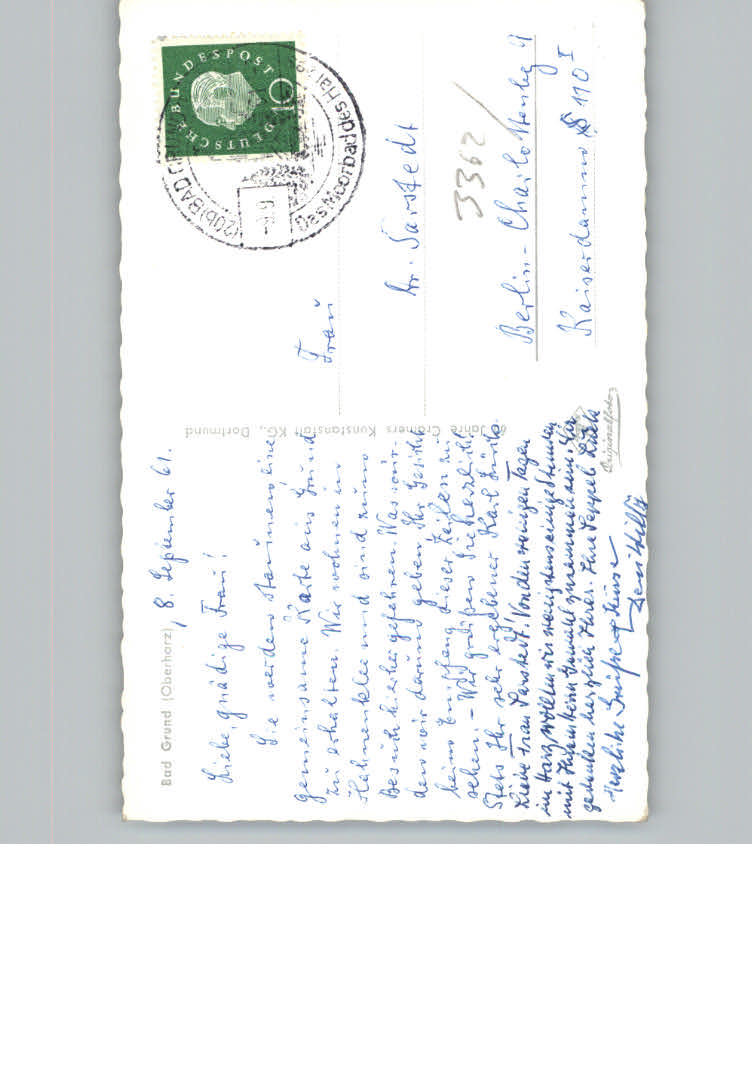 Bad Grund (Oberharz), 8. September 61.
Liebe, gnädige Frau!
Sie werden staunen, eine
gemeinsame Karte aus Grund
zu erhalten. Wir wohnen in
Hahnenklee und sind zum
Besuch hierher gefahren. Was
den wir darum geben, Ihr Gesicht
beim Empfang dieser Zeilen zu
sehen. – Wir grüßen Sie herzlichst
Stets Ihr sehr ergebener Karl
Liebe Frau Sarstedt! Von den wenigen Tagen
im Harz wollten wir wenigstens einige Stunden
mit Ihrem Herrn Gemahl zusammen sein. Wir
gedenken herzlich Ihrer. Ihre
Herzliche Grüße
40 Jahre Cramers Kunstanstalt KG., Dortmund
Originalfoto
DEUTSCHE BUNDESPOST
10
(20b) BAD GRUND
Das Moorbad des Harzes
Frau
Dr. Sarstedt
3362
Berlin-Charlottenburg 9
Kaiserdamm 110 I